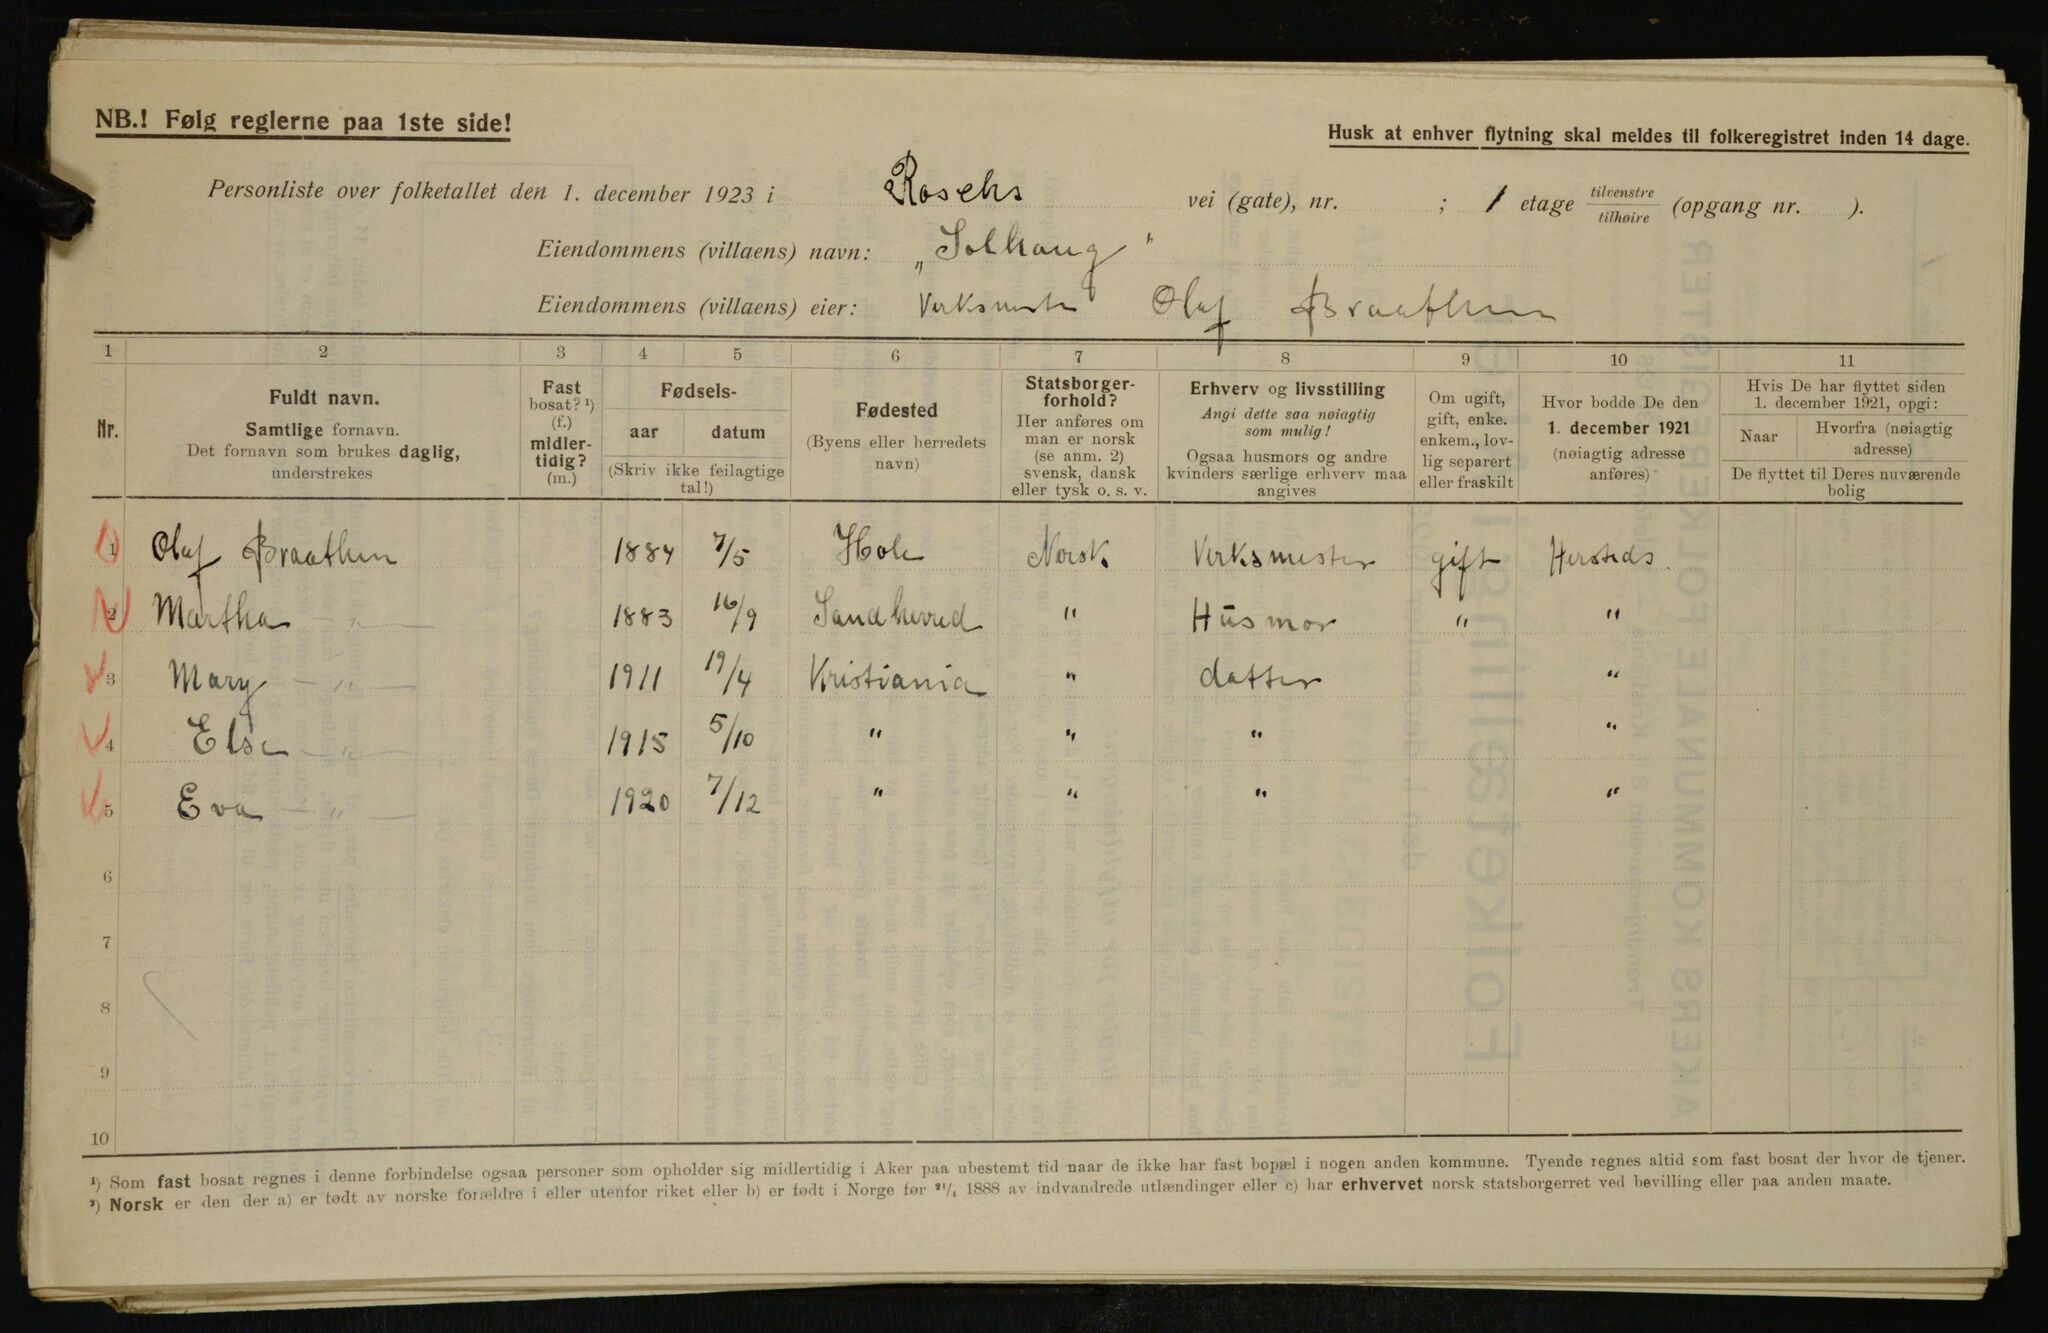 NB.! Følg reglerne paa 1ste side!
Husk at enhver flytning skal meldes til folkeregistret inden 14 dage.
Personliste over folketallet den 1. december 1923 i Roschs vei (gate), nr. ; 1 etage tilvenstre tilhøire (opgang nr. ).
Eiendommens (villaens) navn: „Solhaug"
Eiendommens (villaens) eier: Verksmester Olaf Braathen
1 2 3 4 5 6 7 8 9 10 11
Nr.
Fuldt navn.
Samtlige fornavn.
Det fornavn som brukes daglig,
understrekes
Fast
bosat? ¹)
(f.)
midler-
tidig?
(m.)
Fødsels-
aar datum
(Skriv ikke feilagtige
tal!)
Fødested
(Byens eller herredets
navn)
Statsborger-
forhold?
Her anføres om
man er norsk
(se anm. 2)
svensk, dansk
eller tysk o. s. v.
Erhverv og livsstilling
Angi dette saa nøiagtig
som mulig!
Ogsaa husmors og andre
kvinders særlige erhverv maa
angives
Om ugift,
gift, enke.
enkem., lov-
lig separert
eller fraskilt
Hvor bodde De den
1. december 1921
(nøiagtig adresse
anføres)
Hvis De har flyttet siden
1. december 1921, opgi:
Naar
Hvorfra (nøiagtig
adresse)
De flyttet til Deres nuværende
bolig
1 Olaf Braathen 1884 7/5 Hole Norsk Verksmester gift Hersteds.
2 Martha — „ — 1883 16/9 Sandherred " Husmor " "
3 Mary — „ — 1911 19/4 Kristiania " datter "
4 Else — „ — 1915 5/10 " " " "
5 Eva — „ — 1920 7/12 " " " "
6
7
8
9
10
¹) Som fast bosat regnes i denne forbindelse ogsaa personer som opholder sig midlertidig i Aker paa ubestemt tid naar de ikke har fast bopæl i nogen anden kommune. Tyende regnes altid som fast bosat der hvor de tjener.
²) Norsk er den der a) er født av norske forældre i eller utenfor riket eller b) er født i Norge før ²¹/₄ 1888 av indvandrede utlændinger eller c) har erhvervet norsk statsborgerret ved bevilling eller paa anden maate.